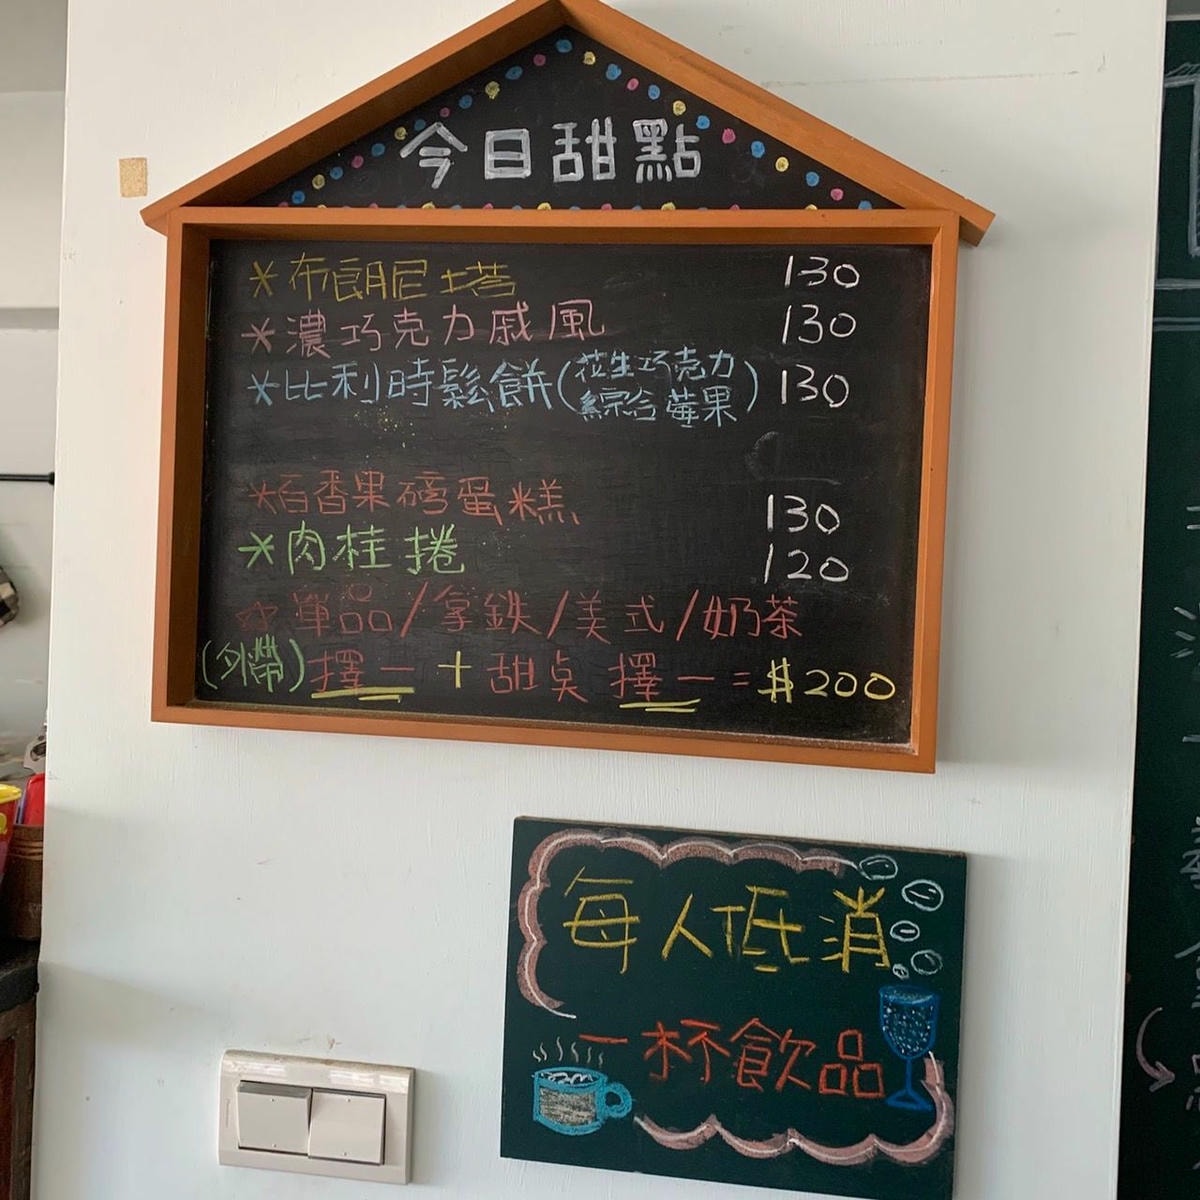 今日甜點
*布朗尼塔 130
*濃巧克力戚風 130
*比利時鬆餅(花生巧克力 綜合莓果) 130
*百香果磅蛋糕 130
*肉桂捲 120
單品/拿鐵/美式/奶茶
(外帶)擇一+甜点擇一=$200
每人低消
一杯飲品